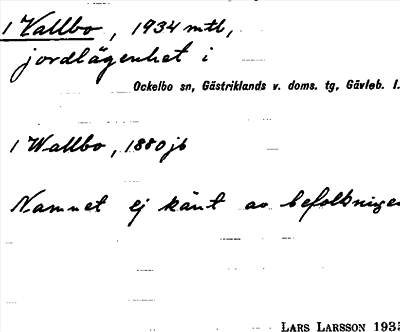 1 Vallbo, 1934 mtl,
jordlägenhet i
Ockelbo sn, Gästriklands v. doms. tg, Gävleb. l.
1 Wallbo, 1880 jb
Namnet ej känt av befolkningen
LARS LARSSON 1935